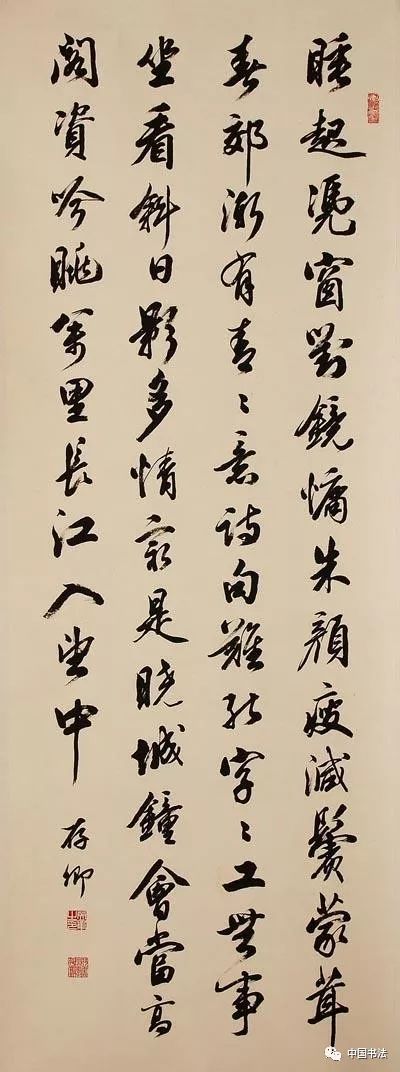 睡起凭窗對鏡慵朱顏瘦減鬢蒙茸
春郊漸有青〻意詩句難能字〻工無事
坐看斜日影多情最是曉城鐘會當高
閣資吟眺萬里長江入望中
存卿
中国书法